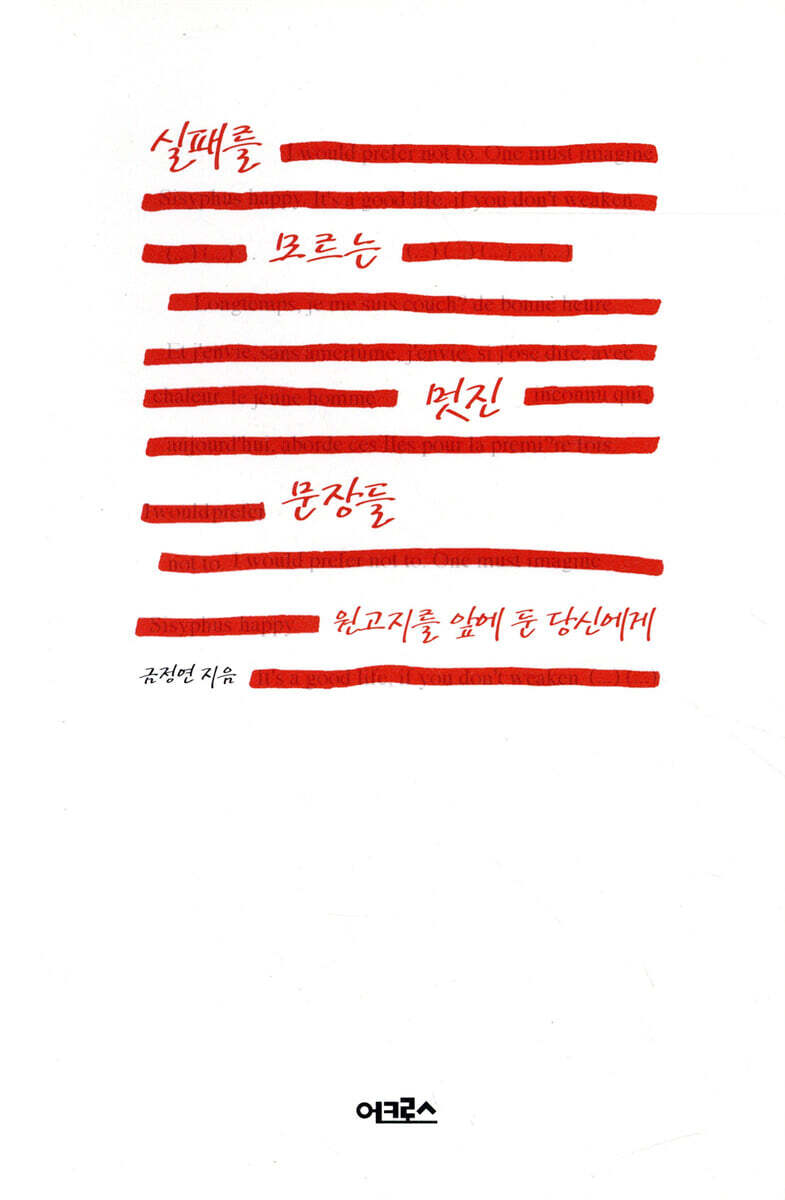 실패를 I would prefer not to. One must imagine
Sisyphus happy. It's a good life, if you don't weaken.
(...) (...) 모르는 (...) (...) (...) ... (...)
Longtemps, je me suis couch? de bonne heure
Et j'envie, sans amertume, j'envie, si j'ose dire, avec
chaleur, le jeune homme 멋진 inconnu qui,
aujourd'hui, aborde ces îles pour la premi re fois
I would prefer 문장들
not to. I would prefer not to. One must imagine
Sisyphus happy. 원고지를 앞에 둔 당신에게
금정연 지음 It's a good life, if you don't weaken. (...) (...)
어크로스